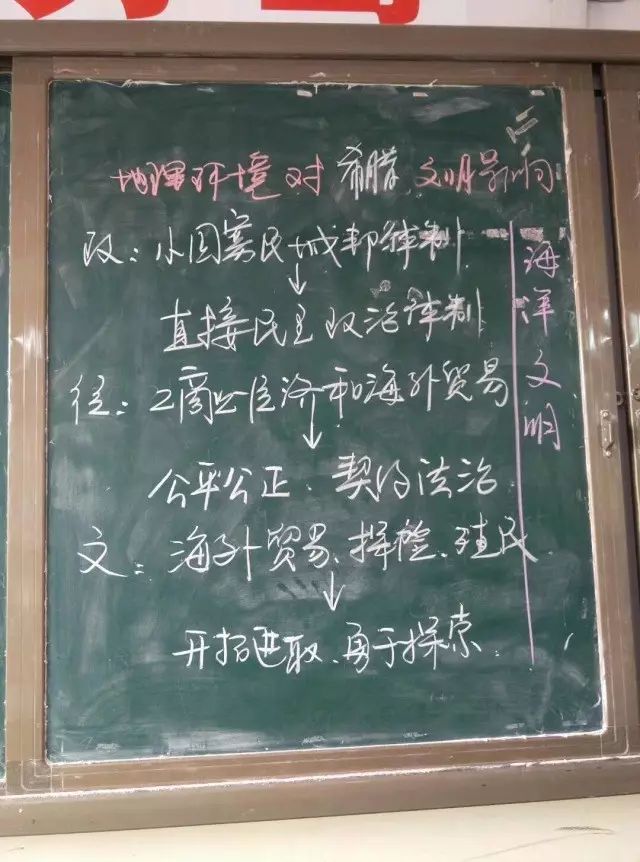 地理环境对希腊文明影响
政：小国寡民城邦体制
↓
直接民主政治体制
经：工商业经济和海外贸易
↓
公平公正、契约法治
文：海外贸易、探险、殖民
↓
开拓进取、勇于探索
海洋文明